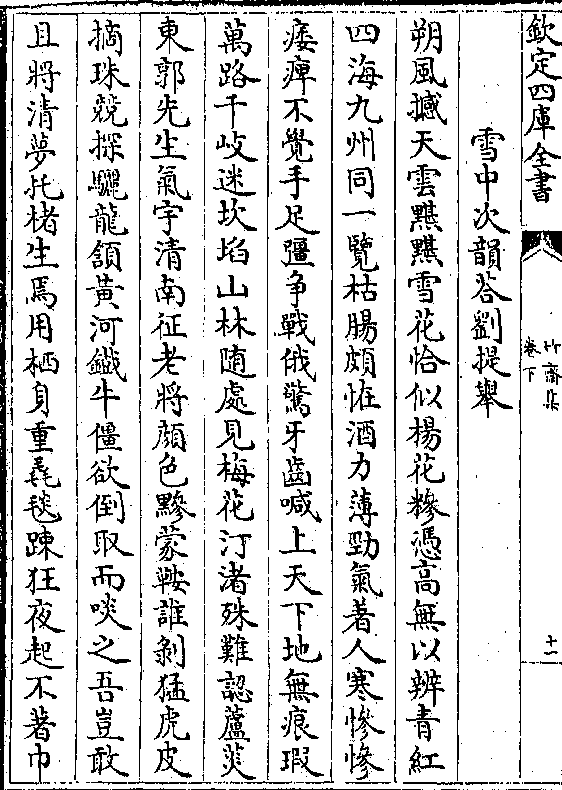 欽定四庫全書
竹齋集
卷下
十一
雪中次韻荅劉提舉
朔風撼天雲黮黮雪花恰似楊花糝憑高無以辨青紅
四海九州同一覽枯腸頗恠酒力薄勁氣著人寒慘慘
痿痺不覺手足疆争戰俄驚牙齒喊上天下地無痕瑕
萬路千岐迷坎埳山林随處見梅花汀渚殊難認蘆菼
東郭先生氣宇清南征老將顔色黲蒙鞍誰剝猛虎皮
摘珠競探驪龍頷黃河鐵牛僵欲倒取而啖之吾豈敢
且將清夢托楮生焉用栖身重毳毯踈狂夜起不著巾